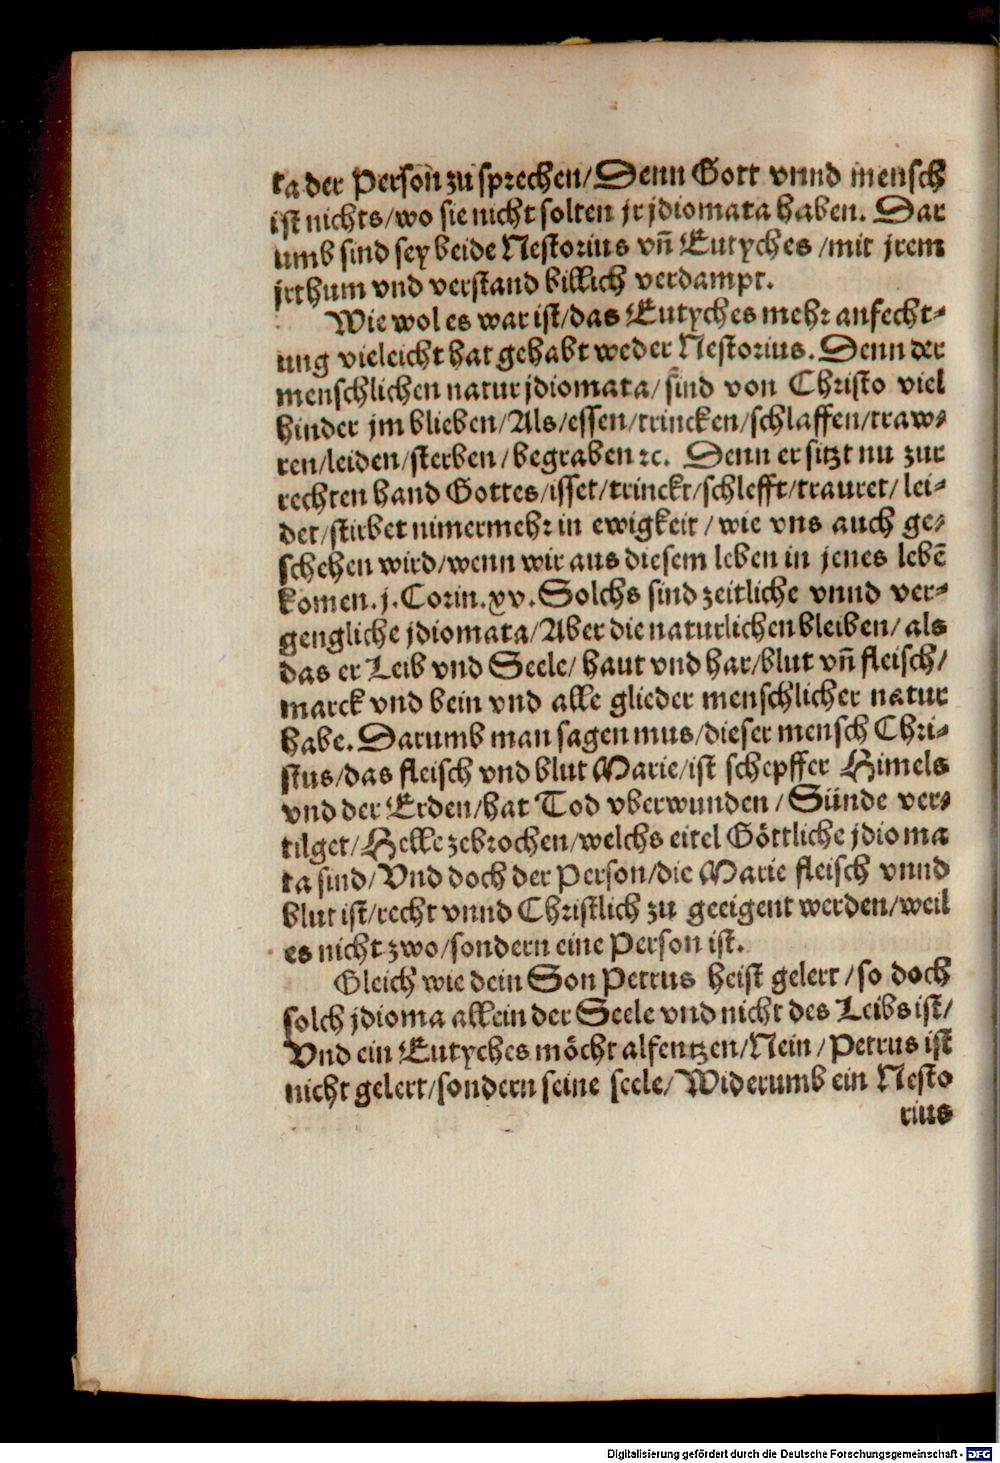 ta der Person zu sprechen/Denn Gott vnnd mensch
ist nichts/wo sie nicht solten jr jdiomata haben. Dar
umb sind sey beide Nestorius vñ Eutyches/mit jrem
jrthum vnd verstand billich verdampt.
Wie wol es war ist/das Eutyches mehr anfecht-
ung vieleicht hat gehabt weder Nestorius. Denn der
menschlichen natur jdiomata/sind von Christo viel
hinder jm blieben/Als/essen/trincken/schlaffen/traw-
ren/leiden/sterben/begraben ꝛc. Denn er sitzt nu zur
rechten hand Gottes/isset/trinckt/schlefft/trauret/lei-
det/stirbet nimermehr in ewigkeit/wie vns auch ge-
schehen wird/wenn wir aus diesem leben in jenes lebē
komen. j. Corin. xv. Solchs sind zeitliche vnnd ver-
gengliche jdiomata/Aber die naturlichen bleiben/als
das er Leib vnd Seele/haut vnd har/blut vñ fleisch/
marck vnd bein vnd alle glieder menschlicher natur
habe. Darumb man sagen mus/dieser mensch Chri-
stus/das fleisch vnd blut Marie/ist schepffer Himels
vnd der Erden/hat Tod vberwunden/Sünde ver-
tilget/Helle zebrochen/welchs eitel Göttliche jdioma
ta sind/Vnd doch der Person/die Marie fleisch vnnd
blut ist/recht vnnd Christlich zu geeigent werden/weil
es nicht zwo/sondern eine Person ist.
Gleich wie dein Son Petrus heist gelert/so doch
solch jdioma allein der Seele vnd nicht des Leibs ist/
Vnd ein Eutyches möcht alfentzen/Nein/Petrus ist
nicht gelert/sondern seine seele/Widerumb ein Nesto
rius
Digitalisierung gefördert durch die Deutsche Forschungsgemeinschaft - DFG